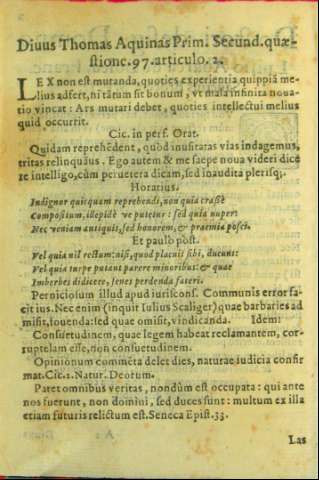 Diuus Thomas Aquinas Prim. Secund. quæ-
stione. 97. articulo. 2.
LEX non est mutanda, quoties experientia quippiã me-
lius adfert, ni tãtum sit bonum, vt mala infinita noua-
tio vincat: Ars mutari debet, quoties intellectui melius
quid occurrit.
Cic. in perf. Orat.
Quidam reprehẽdent, quòd inusitatas vias indagemus,
tritas relinquãus. Ego autem & me saepe noua videri dice
re intelligo, cùm peruetera dicam, sed inaudita plerisq;.
Horatius.
Indignor quicquam reprehendi, non quia crassè
Compositum, illepidè ve putetur: sed quia nuper:
Nec veniam antiquis, sed honorem, & præmia posci.
Et paulo post.
Vel quia nil rectum: nisi, quod placuit sibi, ducunt:
Vel quia turpe putant parere minoribus: & quæ
Imberbes didicere, senes perdenda fateri.
Perniciosum illud apud iurisconf. Communis error fa-
cit ius. Nec enim (inquit Iulius Scaliger) quae barbaries ad
misit, fouenda: sed quae omisit, vindicanda. Idem:
Consuetudinem, quae legem habeat reclamantem, cor-
ruptelam esse, non consuetudinem.
Opinionum commẽta delet dies, naturae iudicia confir
mat. Cic. 2. Natur. Deorum.
Patet omnibus veritas, nondùm est occupata: qui ante
nos fuerunt, non domini, sed duces sunt: multum ex illa
etiam futuris relictum est. Seneca Epist. 33.
Las